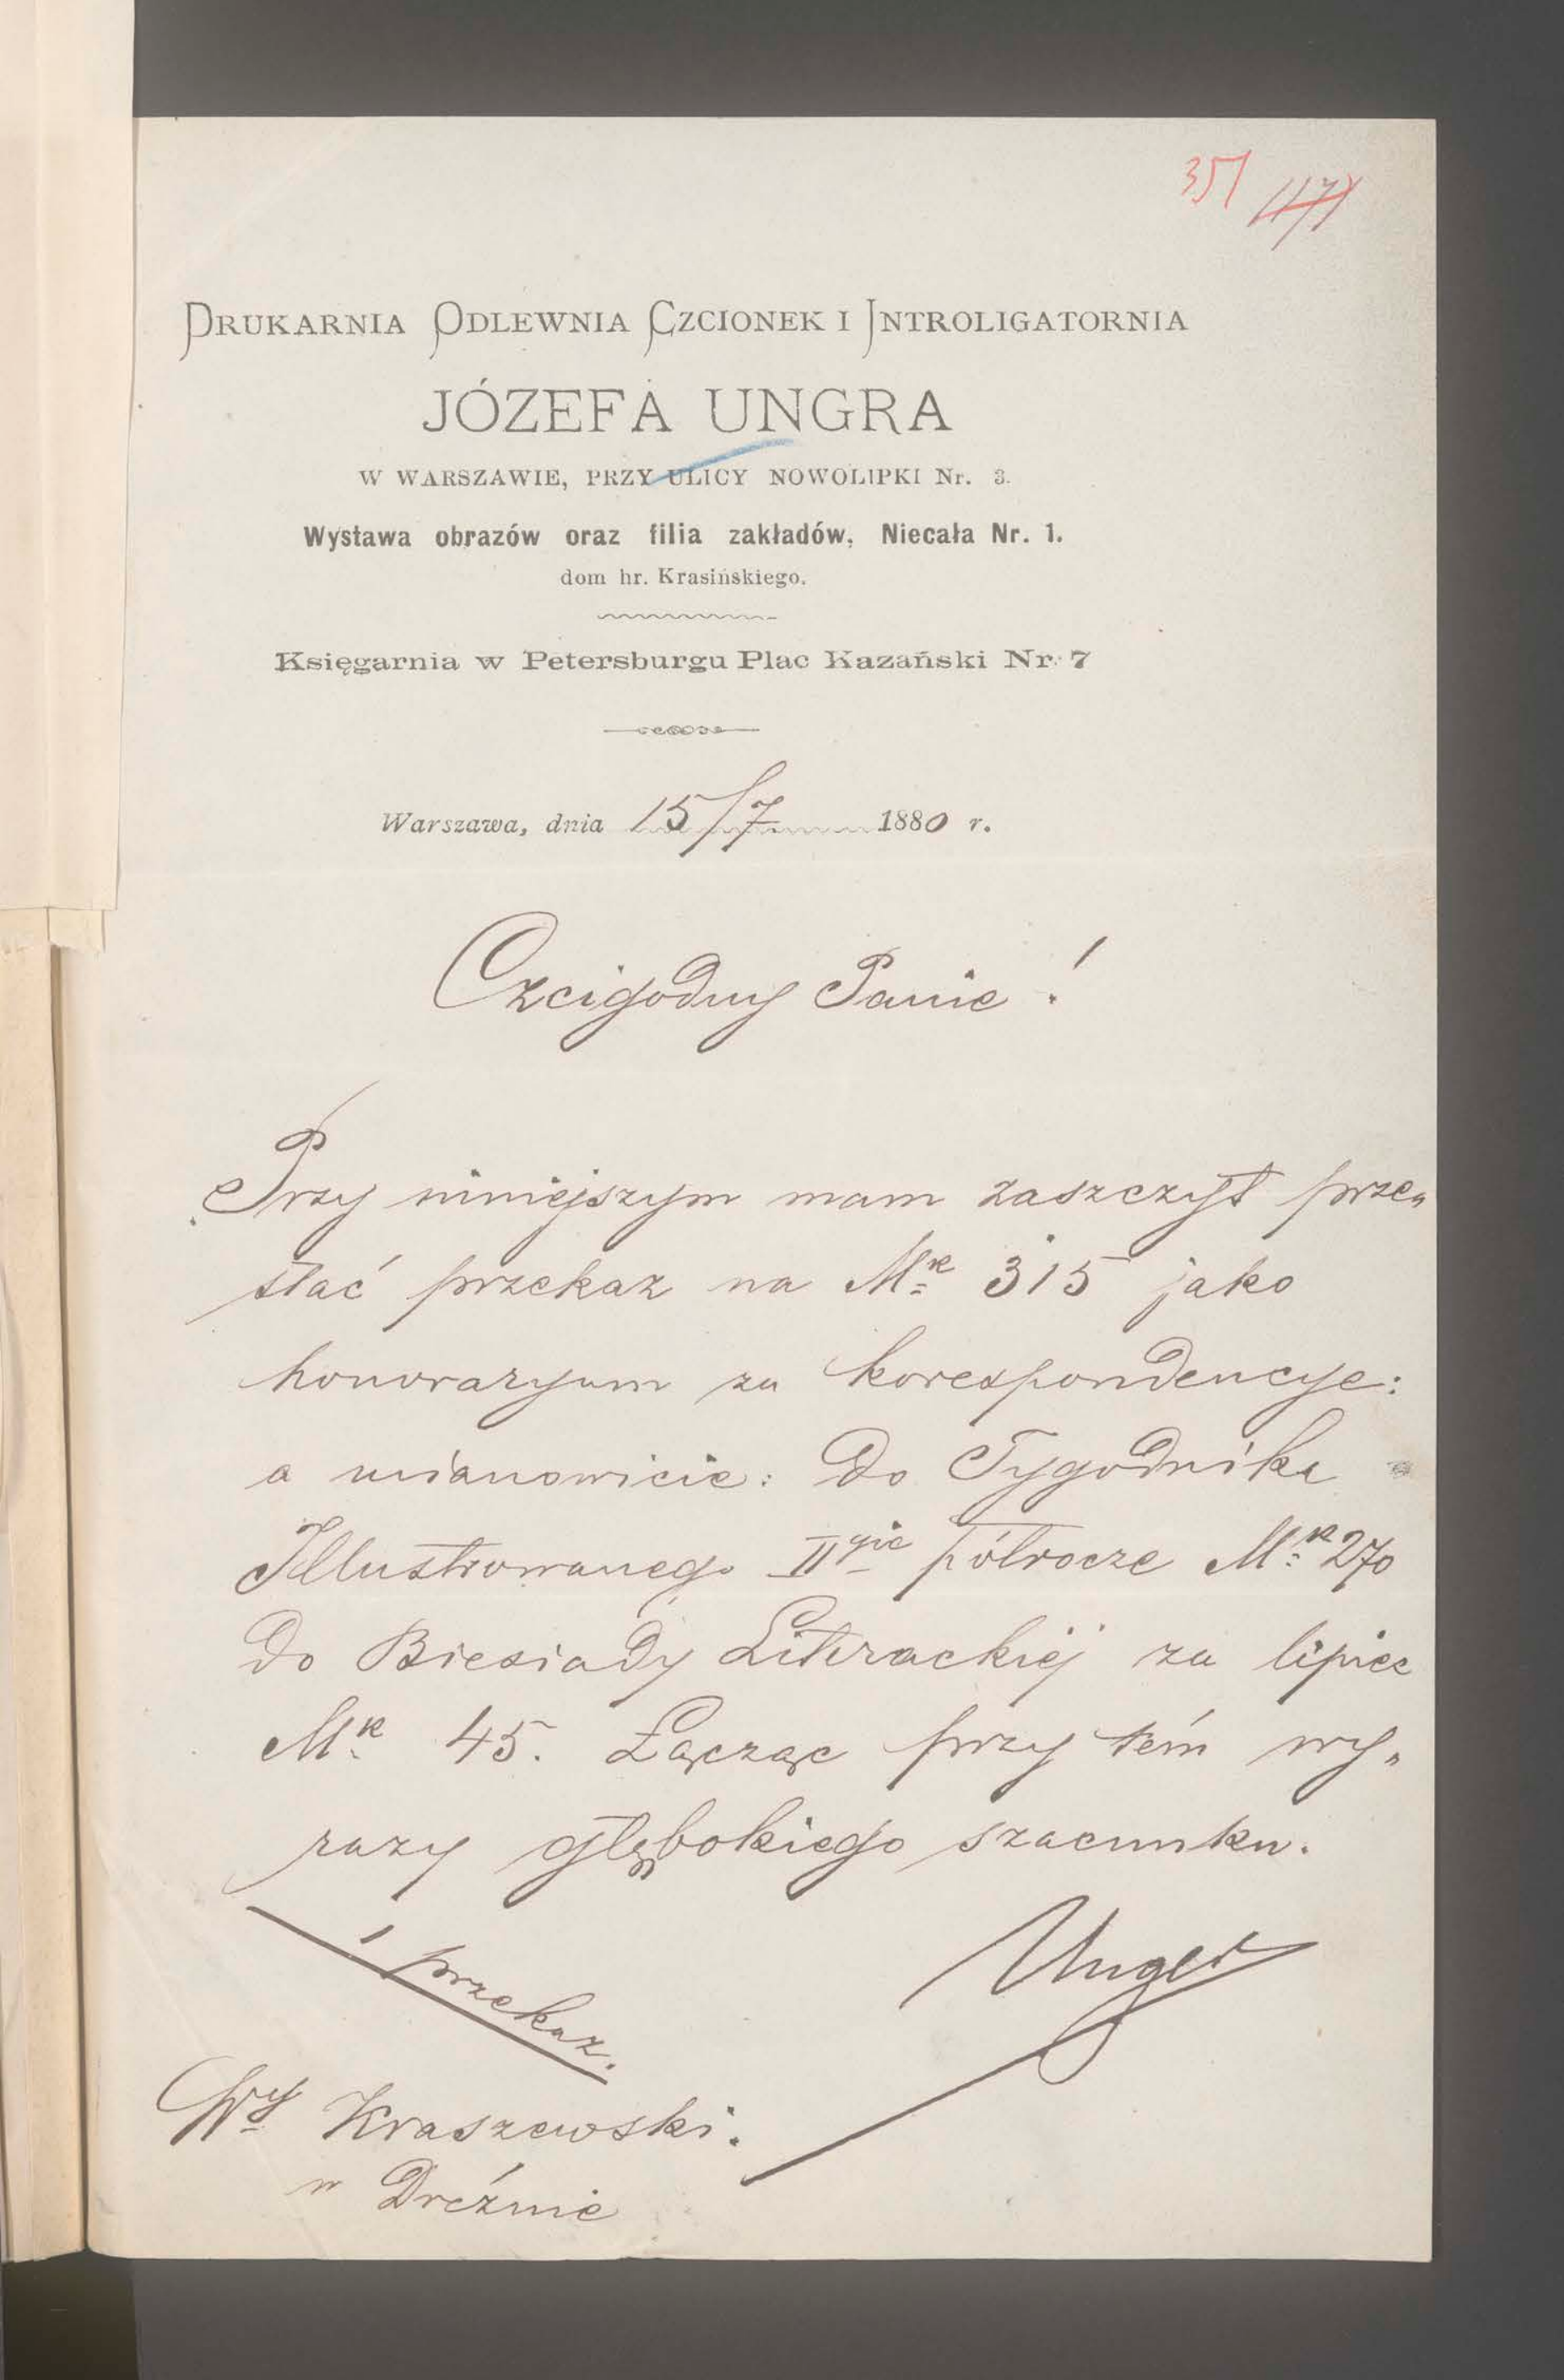 351 1171
DRUKARNIA ODLEWNIA CZCIONEK I INTROLIGATORNIA
JÓZEFA UNGRA
W WARSZAWIE, PRZY ULICY NOWOLIPKI Nr. 3.
Wystawa obrazów oraz filia zakładów, Niecała Nr. 1.
dom hr. Krasińskiego.
Księgarnia w Petersburgu Plac Kazański Nr 7
Warszawa, dnia 15/7 1880 r.
Czcigodny Panie!
Przy niniejszym mam zaszczyt prze„
słać przekaz na Mk 315 jako
honoraryum za korespondencye:
a mianowicie: do Tygodnika
Illustrowanego IIgie półrocze Mk 270
do Biesiady Literackiéj za lipiec
Mk 45. Łącząc przy tém wy„
razy głębokiego szacunku.
Unger
1 przekaz.
Wy Kraszewski.
w Dreźnie